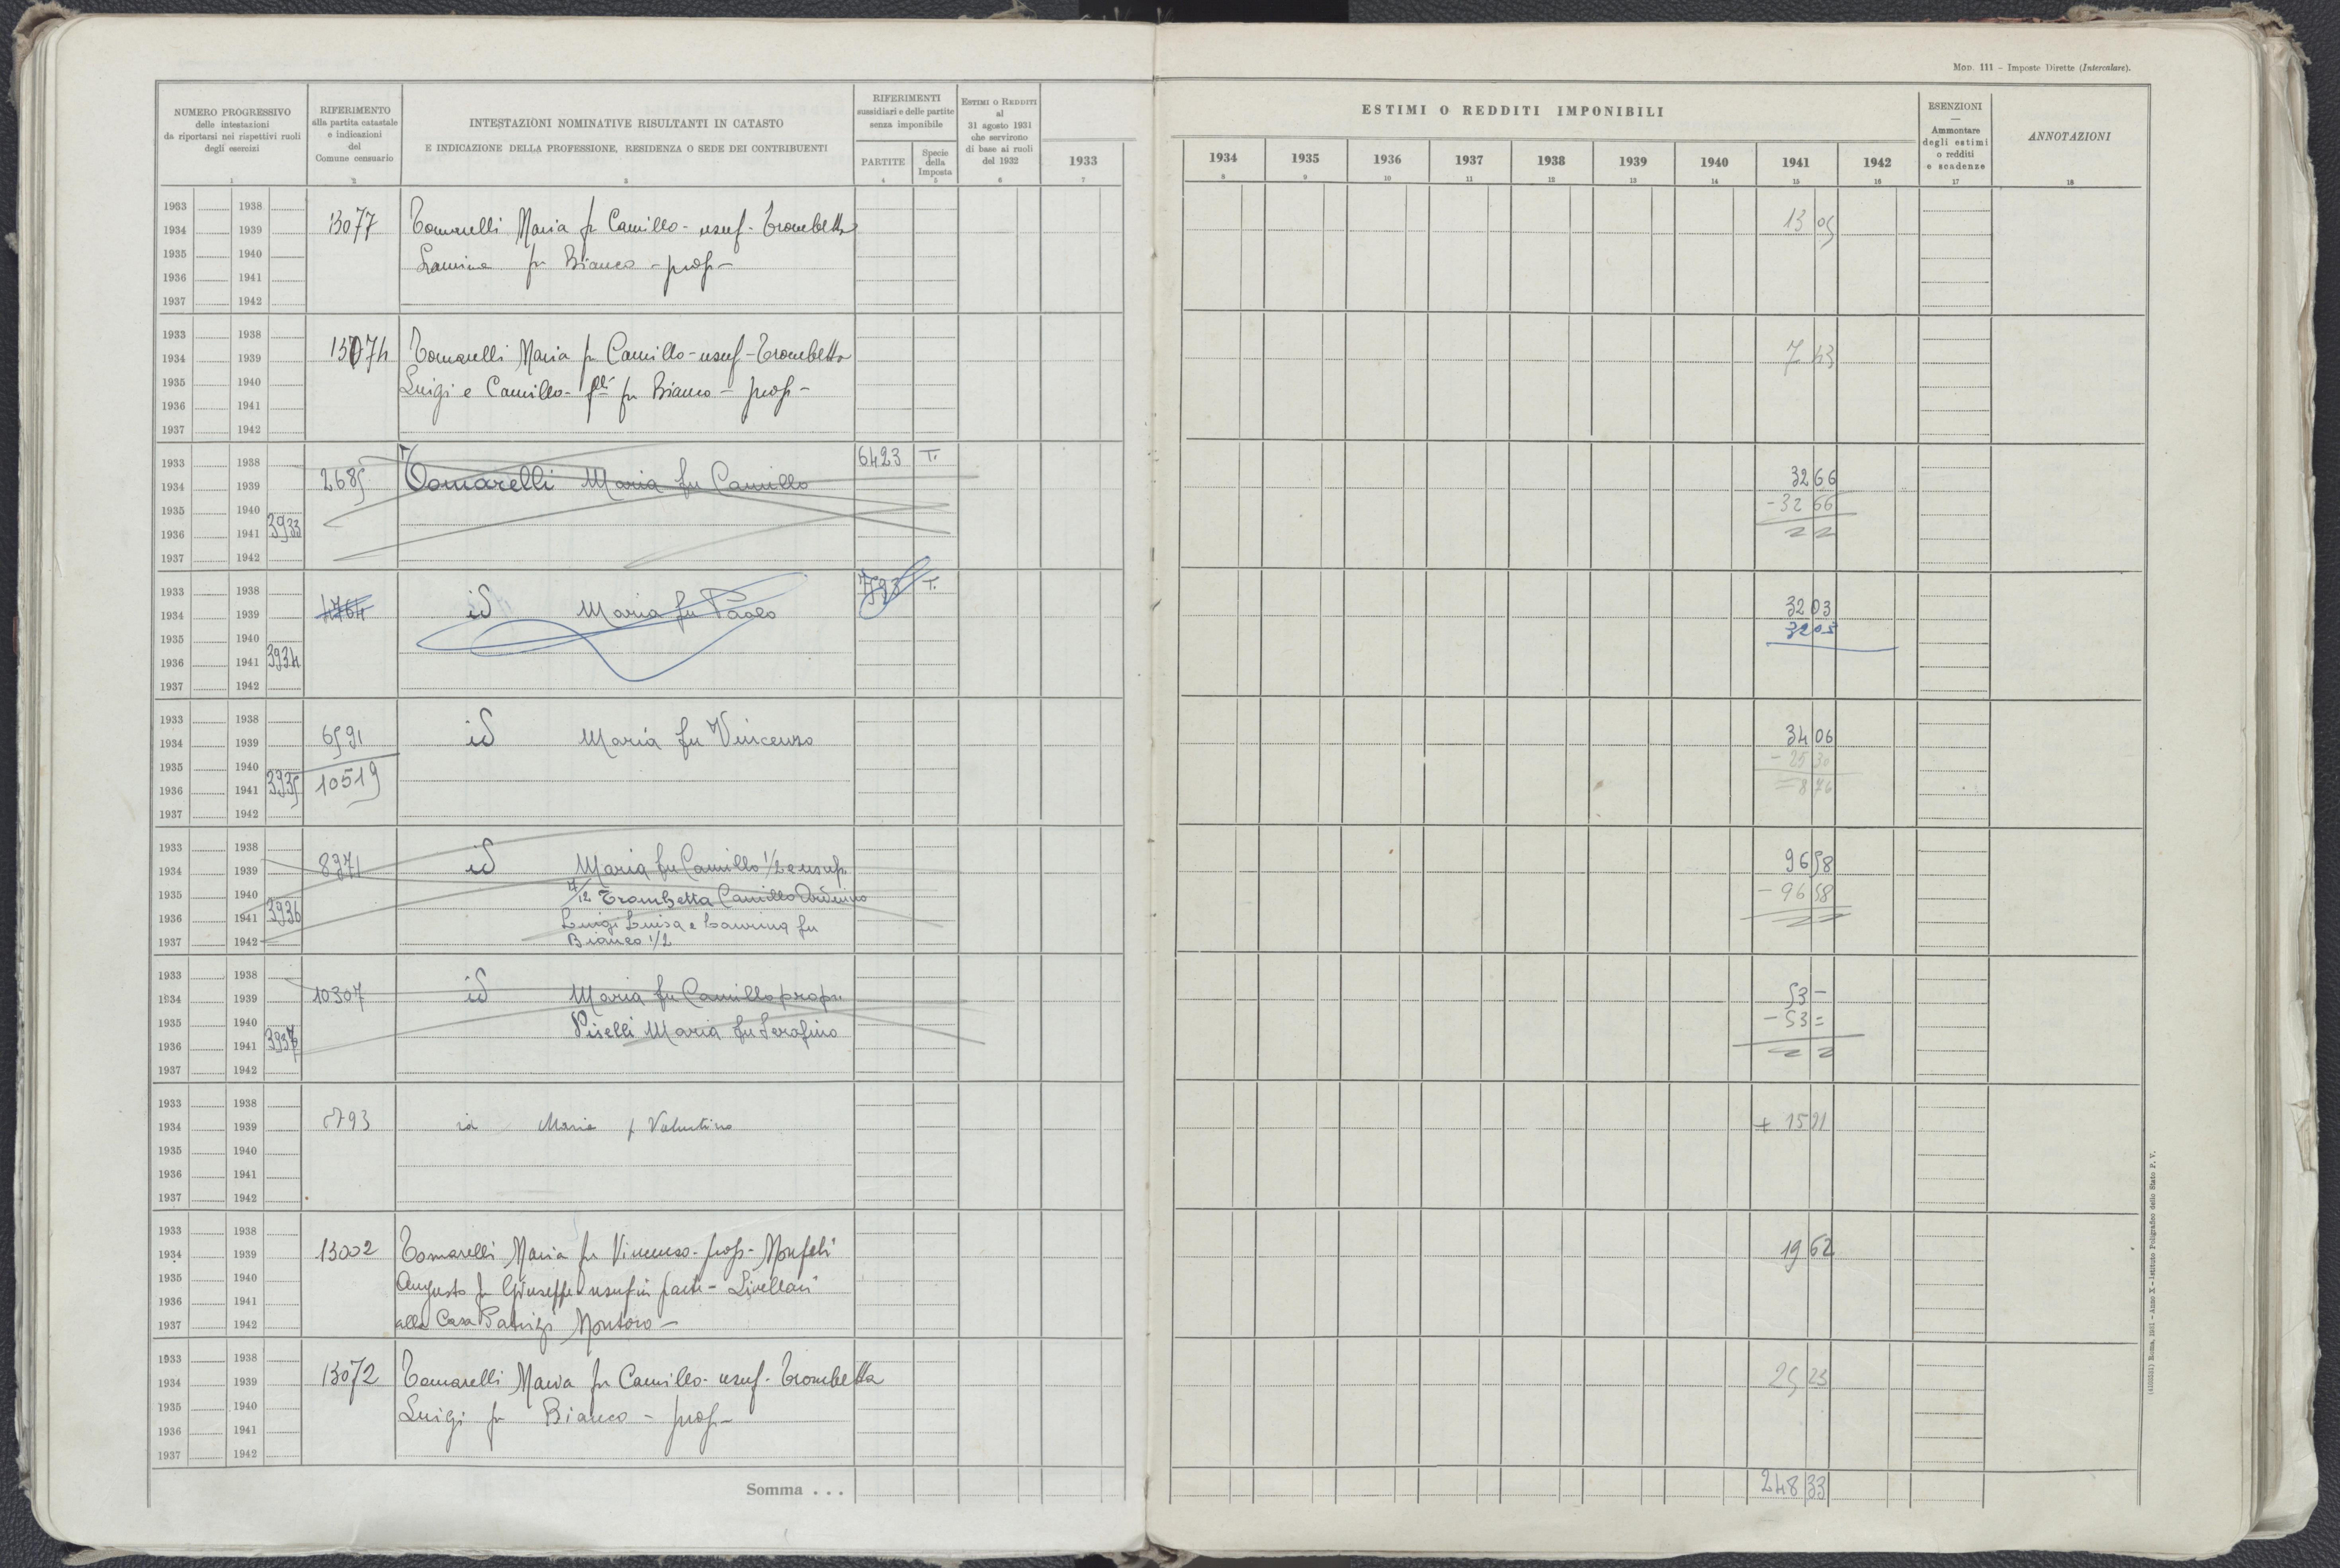 Mod. 111 - Imposte Dirette (Intercalare).
NUMERO PROGRESSIVO
delle intestazioni
da riportarsi nei rispettivi ruoli
degli esercizi
1
RIFERIMENTO
alla partita catastale
e indicazioni
del
Comune censuario
2
INTESTAZIONI NOMINATIVE RISULTANTI IN CATASTO
E INDICAZIONE DELLA PROFESSIONE, RESIDENZA O SEDE DEI CONTRIBUENTI
3
RIFERIMENTI
sussidiari e delle partite
senza imponibile
PARTITE
4
Specie
della
Imposta
5
ESTIMI O REDDITI
al
31 agosto 1931
che servirono
di base ai ruoli
del 1932
6
1933
7
ESTIMI O REDDITI IMPONIBILI
1934 1935 1936 1937 1938 1939 1940 1941 1942
8 9 10 11 12 13 14 15 16
ESENZIONI
—
Ammontare
degli estimi
o redditi
e scadenze
17
ANNOTAZIONI
18
1933 1938
1934 1939 13077 Tomarelli Maria fu Camillo - usuf - Trombetta 13 05
1935 1940 Laurina fu Bianco - prop -
1936 1941
1937 1942
1933 1938
1934 1939 13074 Tomarelli Maria fu Camillo - usuf - Trombetta 7 43
1935 1940 Luigi e Camillo - flli fu Bianco - prop -
1936 1941
1937 1942
1933 1938 6423 T.
1934 1939 2685 Tomarelli Maria fu Camillo 32 66
1935 1940 - 32 66
1936 1941 3933
1937 1942
1933 1938 7593 T.
1934 1939 4764 id Maria fu Paolo 32 03
1935 1940 32 03
1936 1941 3934
1937 1942
1933 1938
1934 1939 6591 id Maria fu Vincenzo 34 06
1935 1940 - 25 30
1936 1941 3935 10519 = 8 76
1937 1942
1933 1938
1934 1939 8371 id Maria fu Camillo 1/2 e usuf. 96 58
1935 1940 /12 Trombetta Camillo Arduino - 96 58
1936 1941 3936 Luigi Luisa e Laurina fu
1937 1942 Bianco 1/2
1933 1938
1934 1939 10307 id Maria fu Camillo propr 53 -
1935 1940 Piselli Maria fu Serafino - 53 =
1936 1941 3937
1937 1942
1933 1938
1934 1939 793 id Maria f Valentino + 15 21
1935 1940
1936 1941
1937 1942
1933 1938
1934 1939 13002 Tomarelli Maria fu Vincenzo - prop - Monfeli 19 62
1935 1940 Augusto fu Giuseppe usuf in parte - Livellari
1936 1941
1937 1942 alla Casa Patrizi Montoro -
1933 1938
1934 1939 13072 Tomarelli Maria fu Camillo - usuf - Trombetta 25 23
1935 1940 Luigi fu Bianco - prop -
1936 1941
1937 1942
Somma . . . 248 33
(4105531) Roma, 1931 - Anno X - Istituto Poligrafico dello Stato P. V.